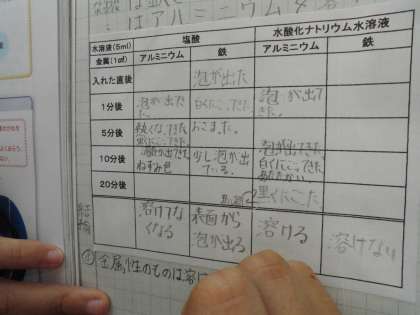 はアルミニウム
水溶液(5ml)
塩酸
水酸化ナトリウム水溶液
金属(1㎠)
アルミニウム
鉄
アルミニウム
鉄
入れた直後
泡が出た
1分後
泡が出た
白くにごってきた
泡が出てきた
5分後
熱くなってきた
おさまった。
10分後
ねずみ色
少し泡が出ている。
泡が出てきた
白くにごってきた
20分後
黒くにごった
溶けてなくなる
表面から泡が出る
溶ける
溶けない
結論
①金属性のものは溶け